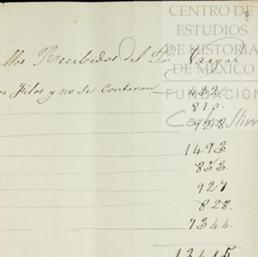 CENTRO DE
ESTUDIOS
DE HISTORIA
DE MÉXICO
FUNDACIÓN
Recibidos del Sr. Vargas
Hilos y no se Contaron 422
818.
928.
1493.
853.
927.
828.
7344.
13415